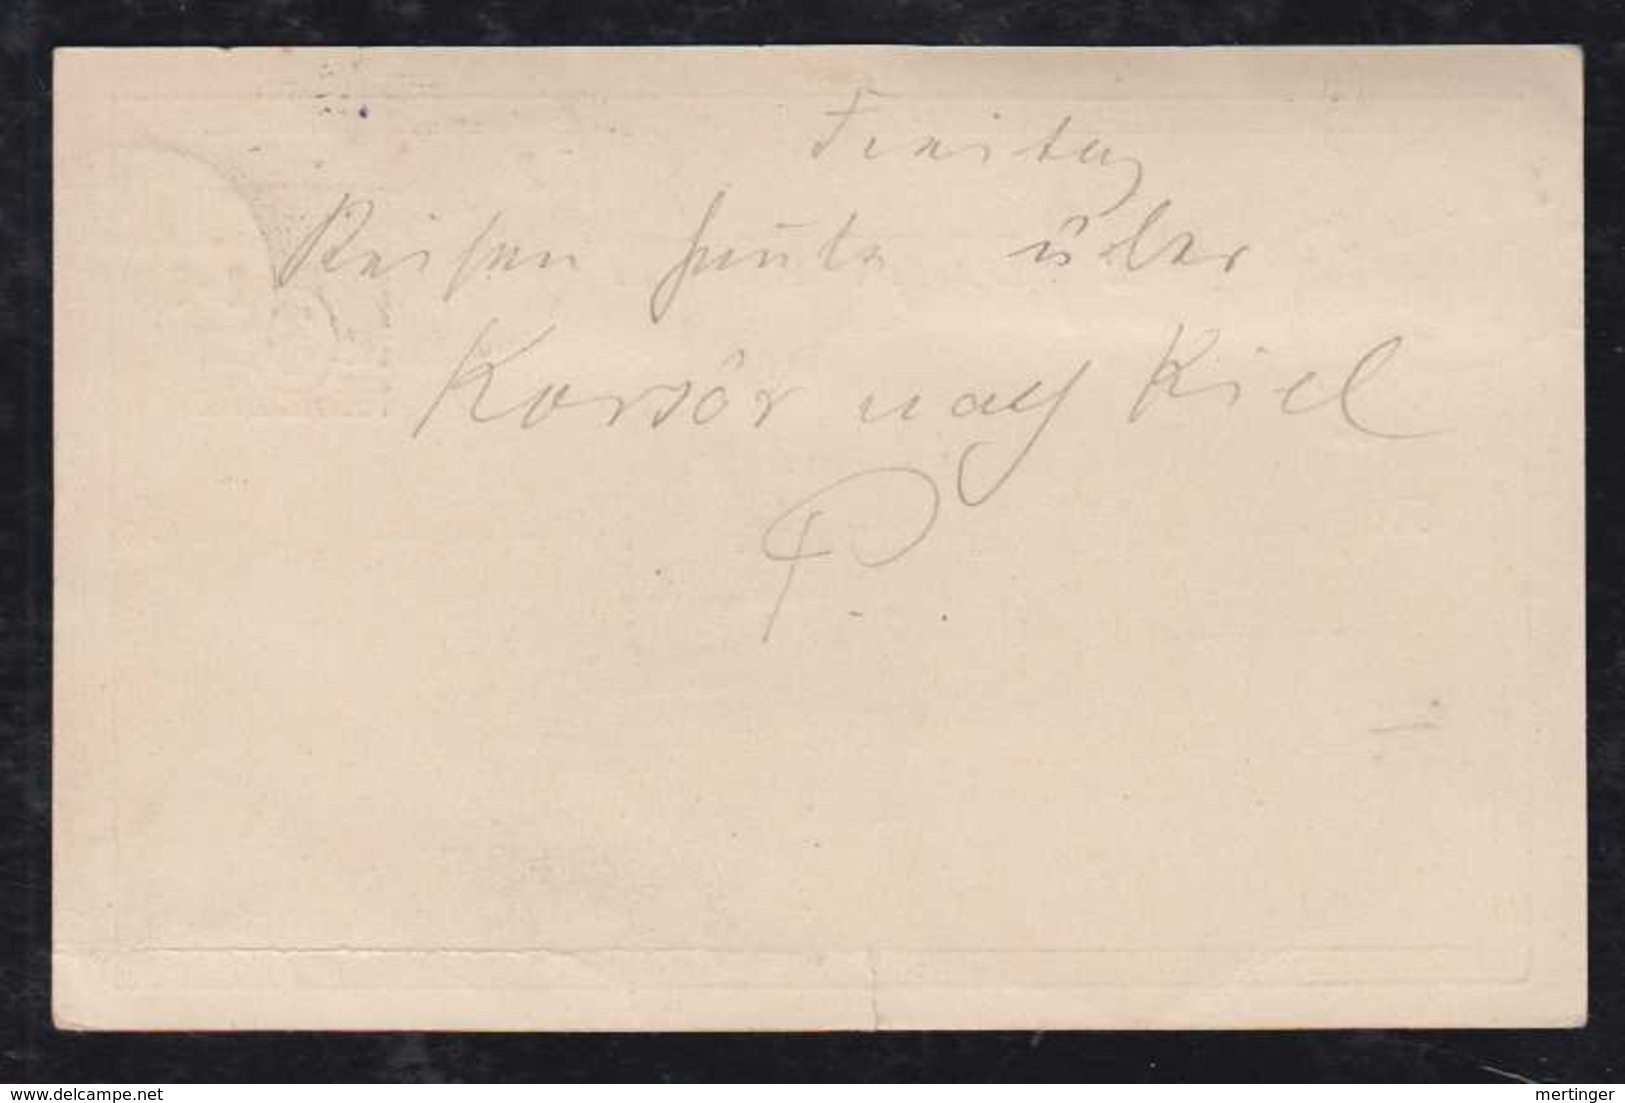 Freitag
Reisen heute über
Korsör nach Kiel
P.
www.delcampe.net
mertinger